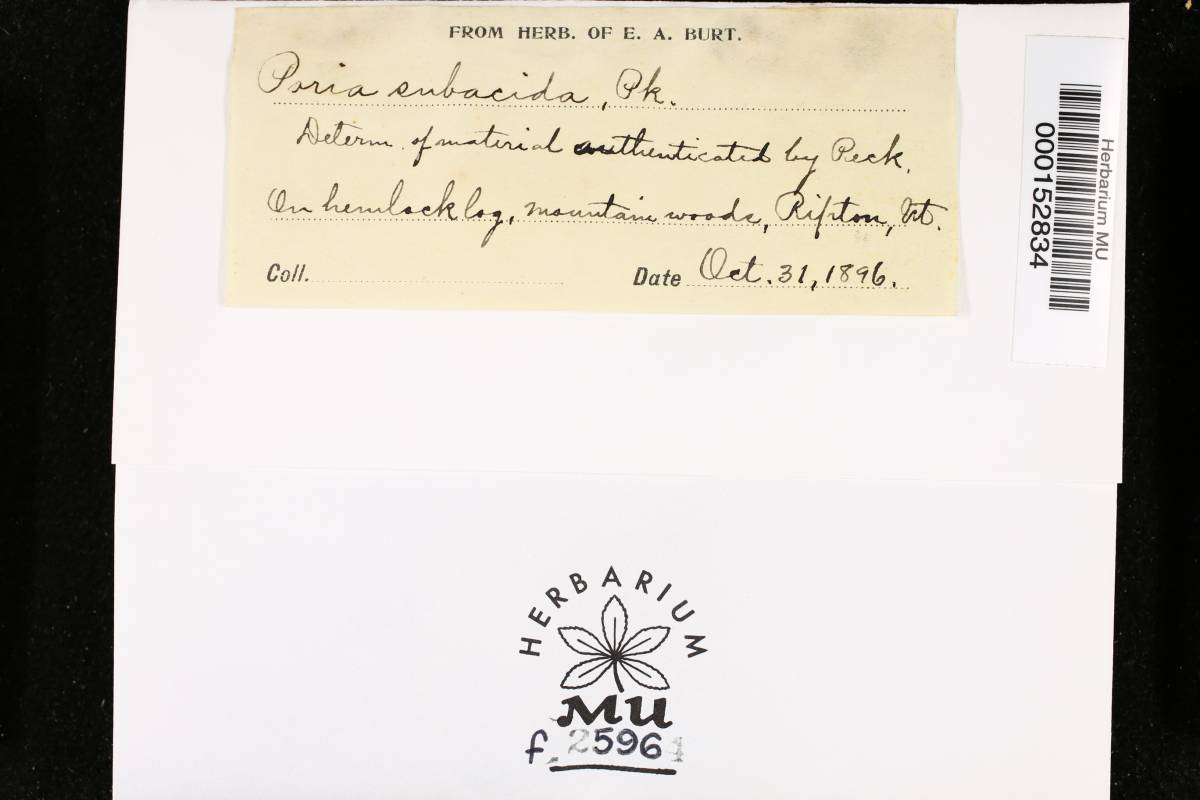 FROM HERB. OF E. A. BURT.
Poria subacida, Pk.
Determ. of material authenticated by Peck.
On hemlock log, mountain woods, Ripton, Vt.
Coll.
Date Oct. 31, 1896.
Herbarium MU
000152834
HERBARIUM
MU
f. 25961